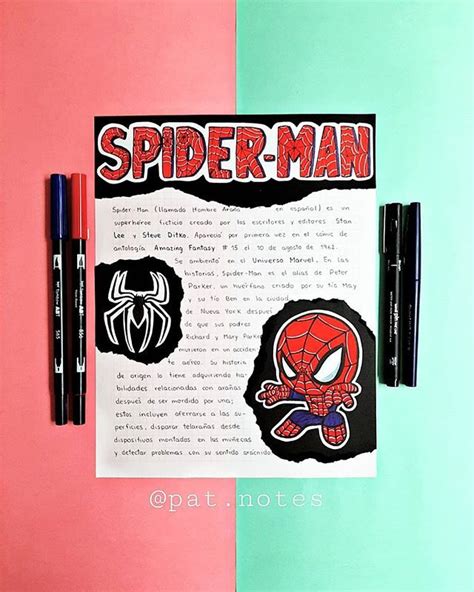 SPIDER-MAN
Spider-Man (llamado Hombre Araña en español) es un
superhéroe ficticio creado por los escritores y editores Stan
Lee y Steve Ditko. Apareció por primera vez en el cómic de
antología Amazing Fantasy # 15 el 10 de agosto de 1962.
Se ambientó en el Universo Marvel. En las
historias, Spider-Man es el alias de Peter
Parker, un huérfano criado por su tía May
y su tío Ben en la ciudad
de Nueva York después
de que sus padres
Richard y Mary Parker
murieron en un acciden
te aéreo. Su historia
de origen lo tiene adquiriendo ha-
bilidades relacionadas con arañas
después de ser mordido por una;
estas incluyen aferrarse a las su-
perficies, disparar telarañas desde
dispositivos montados en las muñecas
y detectar problemas con su sentido arácnido
@pat.notes
ABT
565
ABT
856